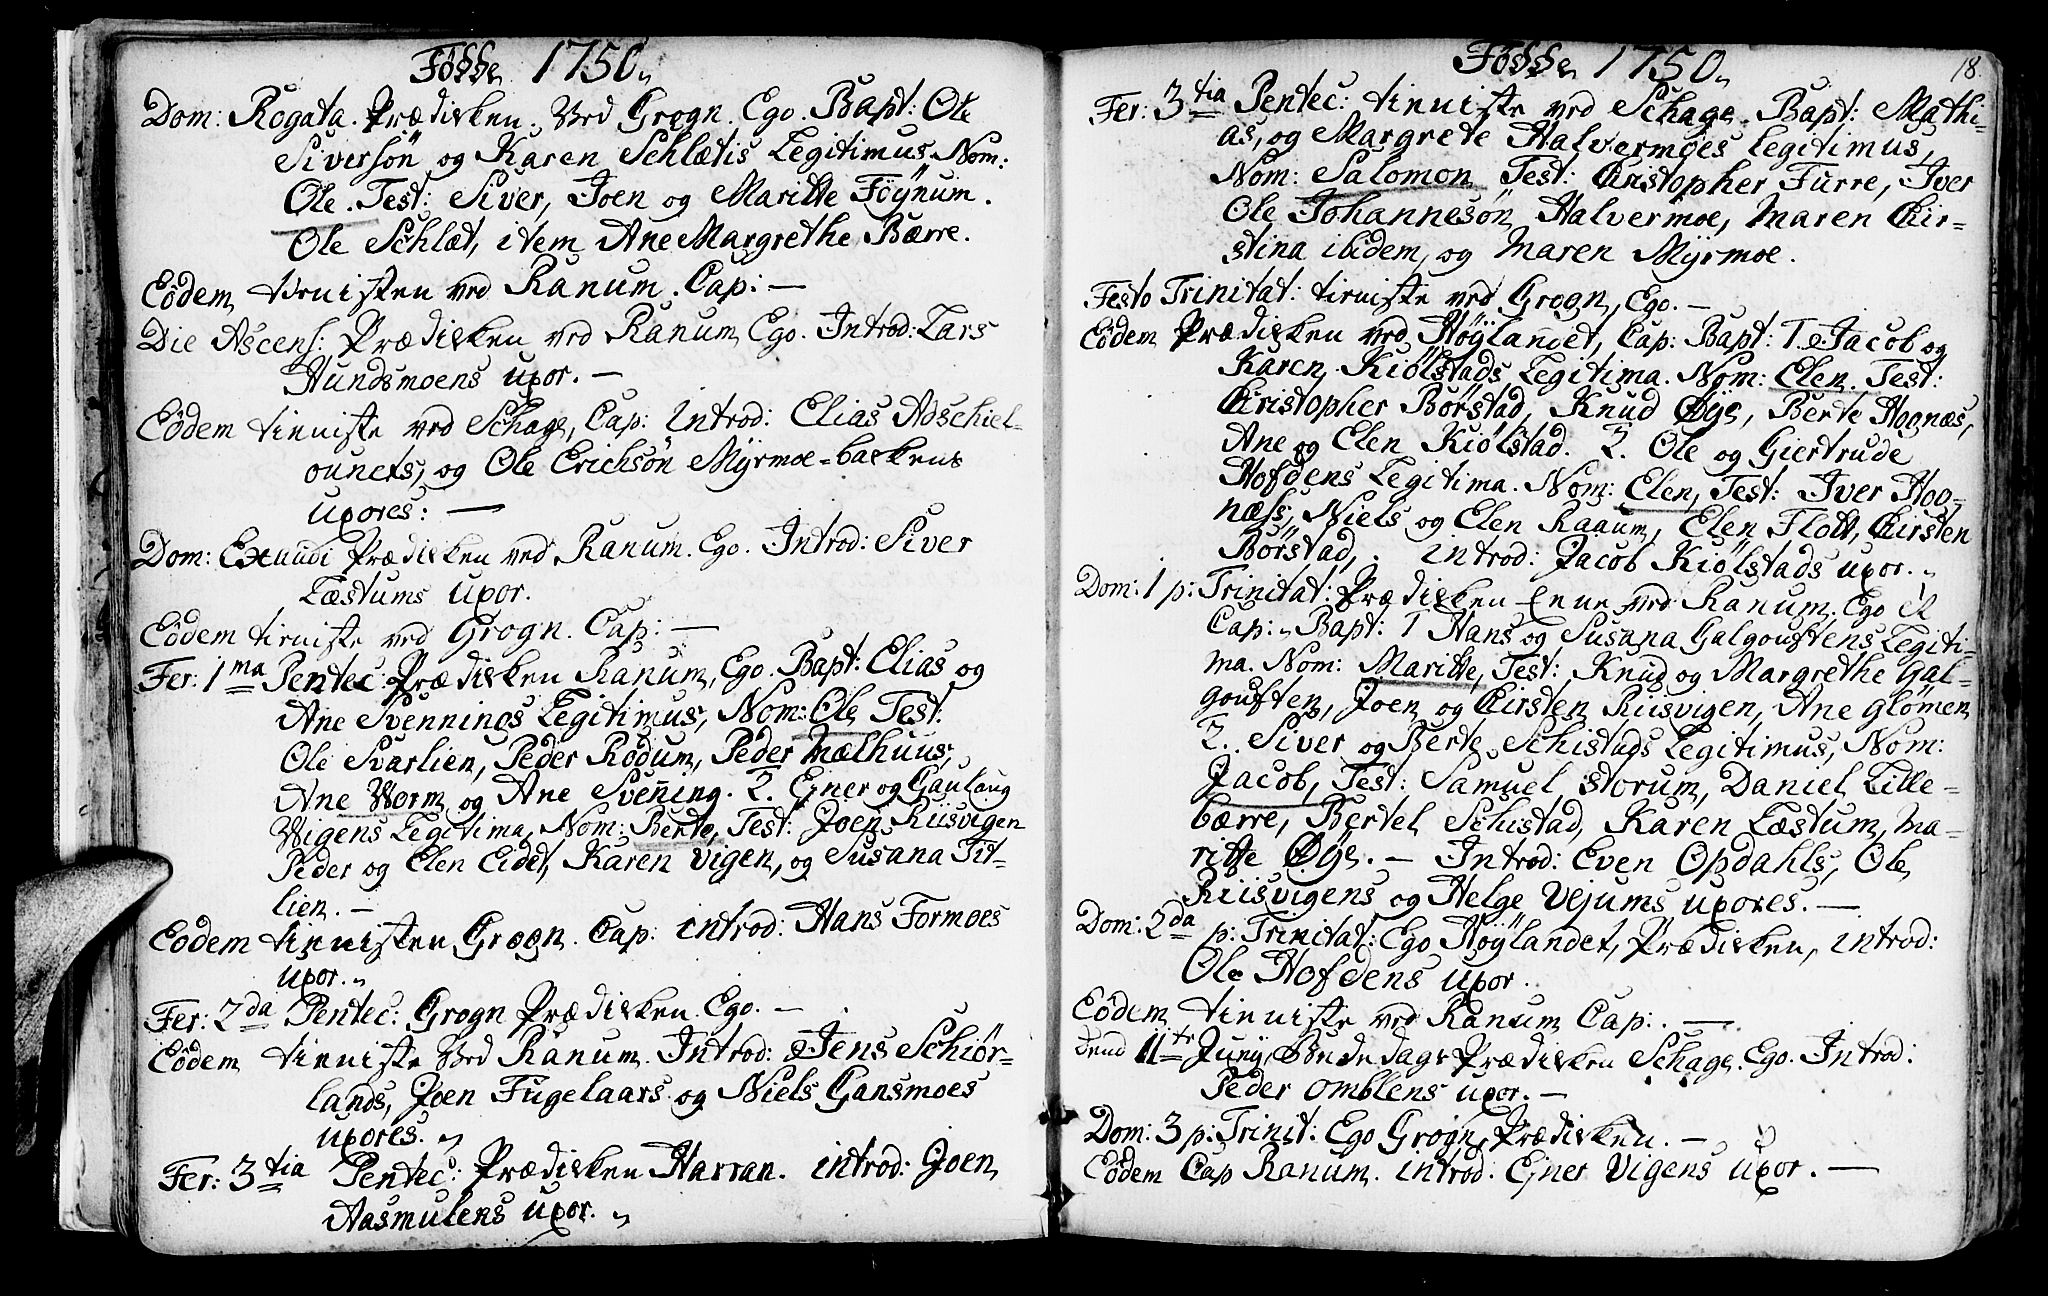 Födde 1750
Dom: Rogata. Prædiken. Ved Grogn. Ego. Bapt: Ole
Siversön og Karen Schlætis Legitimus. Nom:
Ole. Test: Siver, Joen og Maritte Föÿnum.
Ole Schlæt, item Ane Margrethe Bærre.
Eôdem ved Ranum. Cap: —
Die Ascens: Prædiken ved Ranum. Ego. Introd: Lars
Hundsmoens uxor. —
Eôdem ved Schage, Cap: Introd: Elias
og Ole Erichsön Mÿrmoe-backens
uxores: —
Dom: Exaudi Prædiken ved Ranum. Ego. Introd: Siver
Læstums uxor.
Eôdem ved Grogn. Cap: —
Fer: 1ma Pentec: Prædiken Ranum, Ego. Bapt: Elias og
Ane Svennings Legitimus, Nom: Ole Test:
Ole Svarlien, Peder Rödum, Peder Mælhuus,
Ane Worm og Ane Svenning. 2. Ejner og Gaulaug
Wigens Legitima, Nom: Berte, Test: Joen Riisvigen
Peder og Elen Eidet, Karen Vigen, og Susana Tit-
lien. —
Eodem Grogn. Cap: introd: Hans Formoes
uxor.
Fer: 2da Pentec: Grogn Prædiken. Ego. —
Eôdem ved Ranum. Introd: Jens Schiör-
lands, Joen Fugelaars og Niels Gansmoes
uxores.
Fer: 3tia Pentec: Prædiken Harran. introd: Joen
Aasmulens uxor.
Födde 1750
18.
Fer: 3tia Pentec: ved Schage. Bapt: Mathi-
as, og Margrete Halvermoes legitimus,
Nom: Salomon Test: Christopher Furre, Iver
Ole Johannesön Halvermoe, Maren Chir-
stina ibidem, og Maren Mÿrmoe.
Festo Trinitat: ved Grogn, Ego. —
Eôdem Prædiken ved Höÿlandet, Cap: Bapt: 1. Jacob og
Karen Kiölstads Legitima. Nom: Elen. Test:
Christopher Börstad, Knud Øÿe, Berte Hognæs,
Ane og Elen Kiölstad. 2. Ole og Giertrude
Hofdens Legitima. Nom: Elen, Test: Iver Hog-
næss, Niels og Elen Raaum, Elen Flott, Chirsten
Börstad, . introd: Jacob Kiölstads uxor.
Dom: 1 p: Trinitat: Prædiken ved Ranum. Ego et
Cap: Bapt: 1 Hans og Susana Galgouftens Legiti-
ma. Nom: Maritte, Test: Knud og Margrethe Gal-
gouften, Joen og Chirsten Riisvigen, Ane Glömen
2. Siver og Berte Schistads Legitimus, Nom:
Jacob, Test: Samuel Storum, Daniel Lille-
bærre, Bertel Schistad, Karen Læstum, Ma-
ritte Øÿe. — Introd: Even Opdahls, Ole
Riisvigens og Helge Vejums uxores. —
Dom: 2da p: Trinitat: Ego Höÿlandet, Prædiken, introd:
Ole Hofdens uxor.
Eôdem ved Ranum Cap: . —
11te Junÿ, Prædiken Schage. Ego. Introd:
Peder Omblens uxor. —
Dom: 3 p: Trinit: Ego Grogn, Prædiken. —
Eôdem Cap Ranum. introd: Ejner Vigens uxor. —